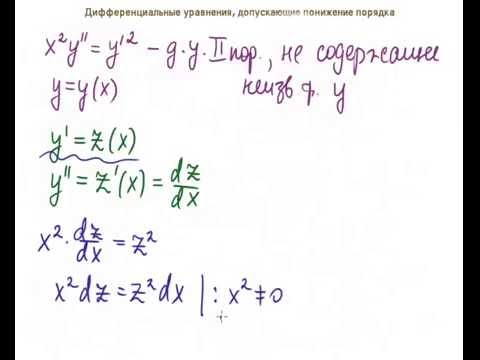 Дифференциальные уравнения, допускающие понижение порядка
x²y'' = y'² – д.у. II пор., не содержащее
y = y(x) неизв ф. y
y' = z(x)
y'' = z'(x) = dz/dx
x² · dz/dx = z²
x²dz = z²dx | : x² ≠ 0